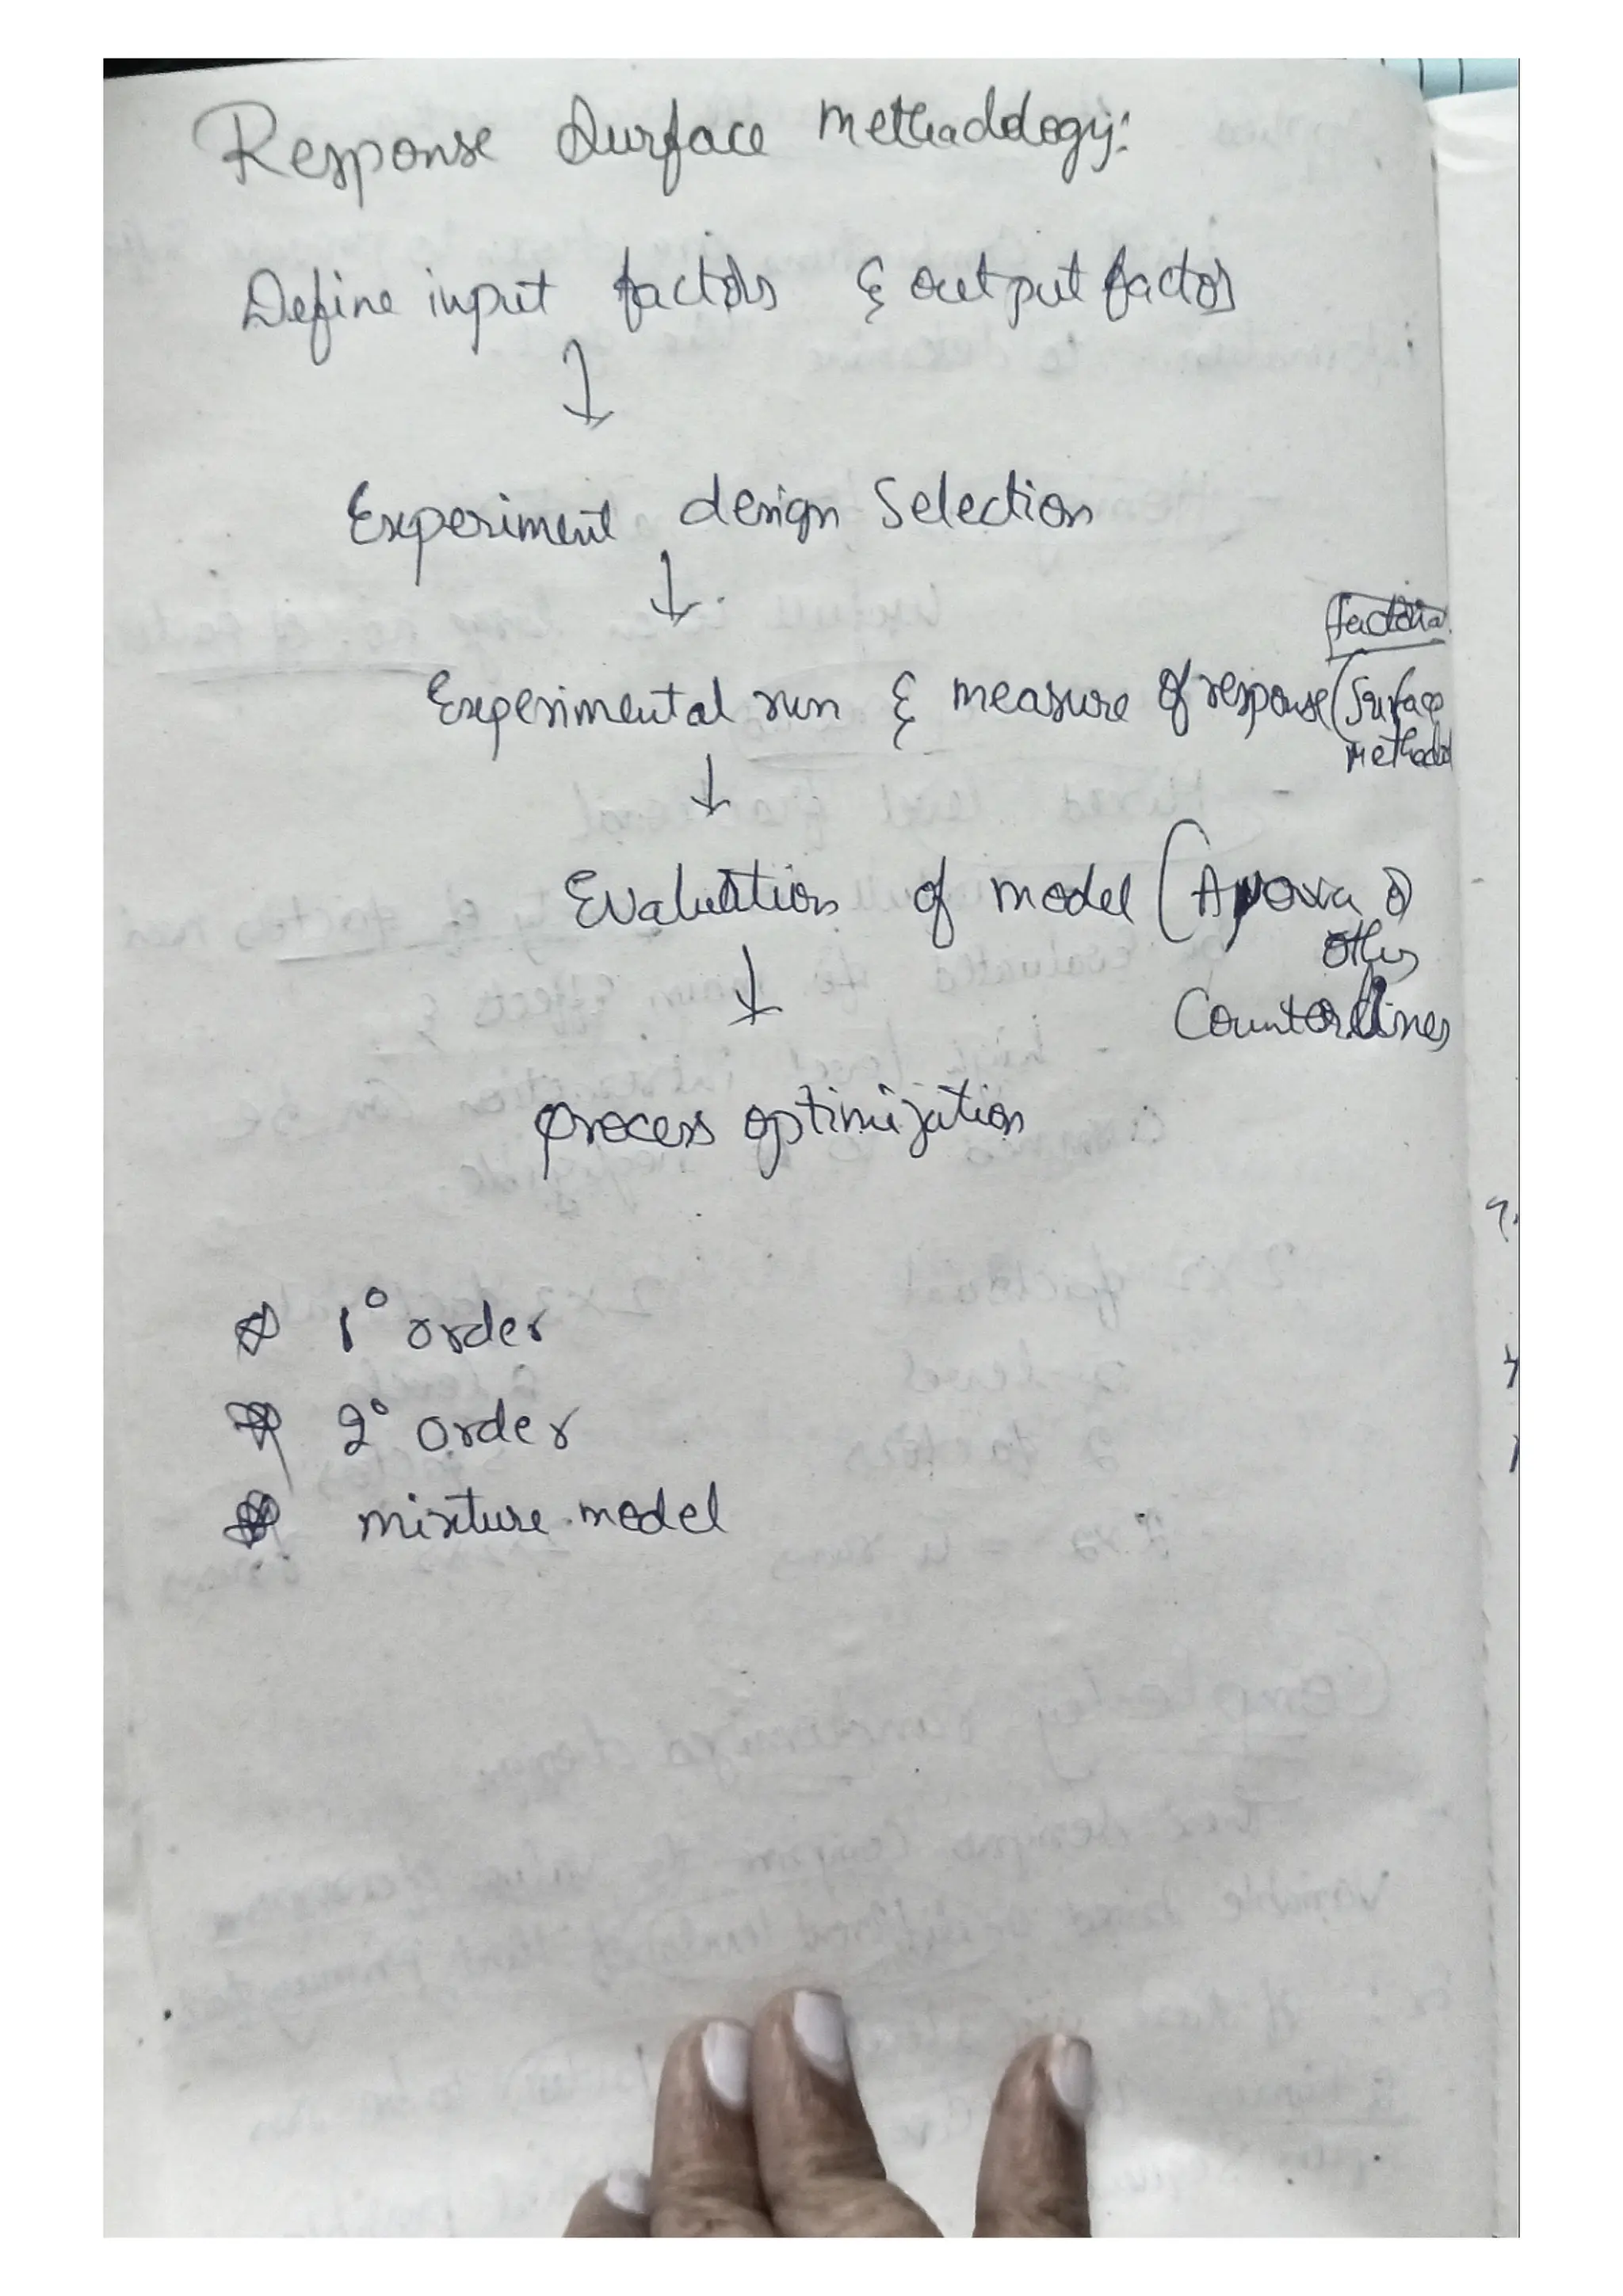 Response Surface Methadology:
Define input factors & output factor
↓
Experiment design Selection
↓
factoria
Experimental run & measure of response (Surface
Method
↓
Evaluation of model (Anova &
other
Counter lines
↓
process optimization
1° order
2° order
mixture model